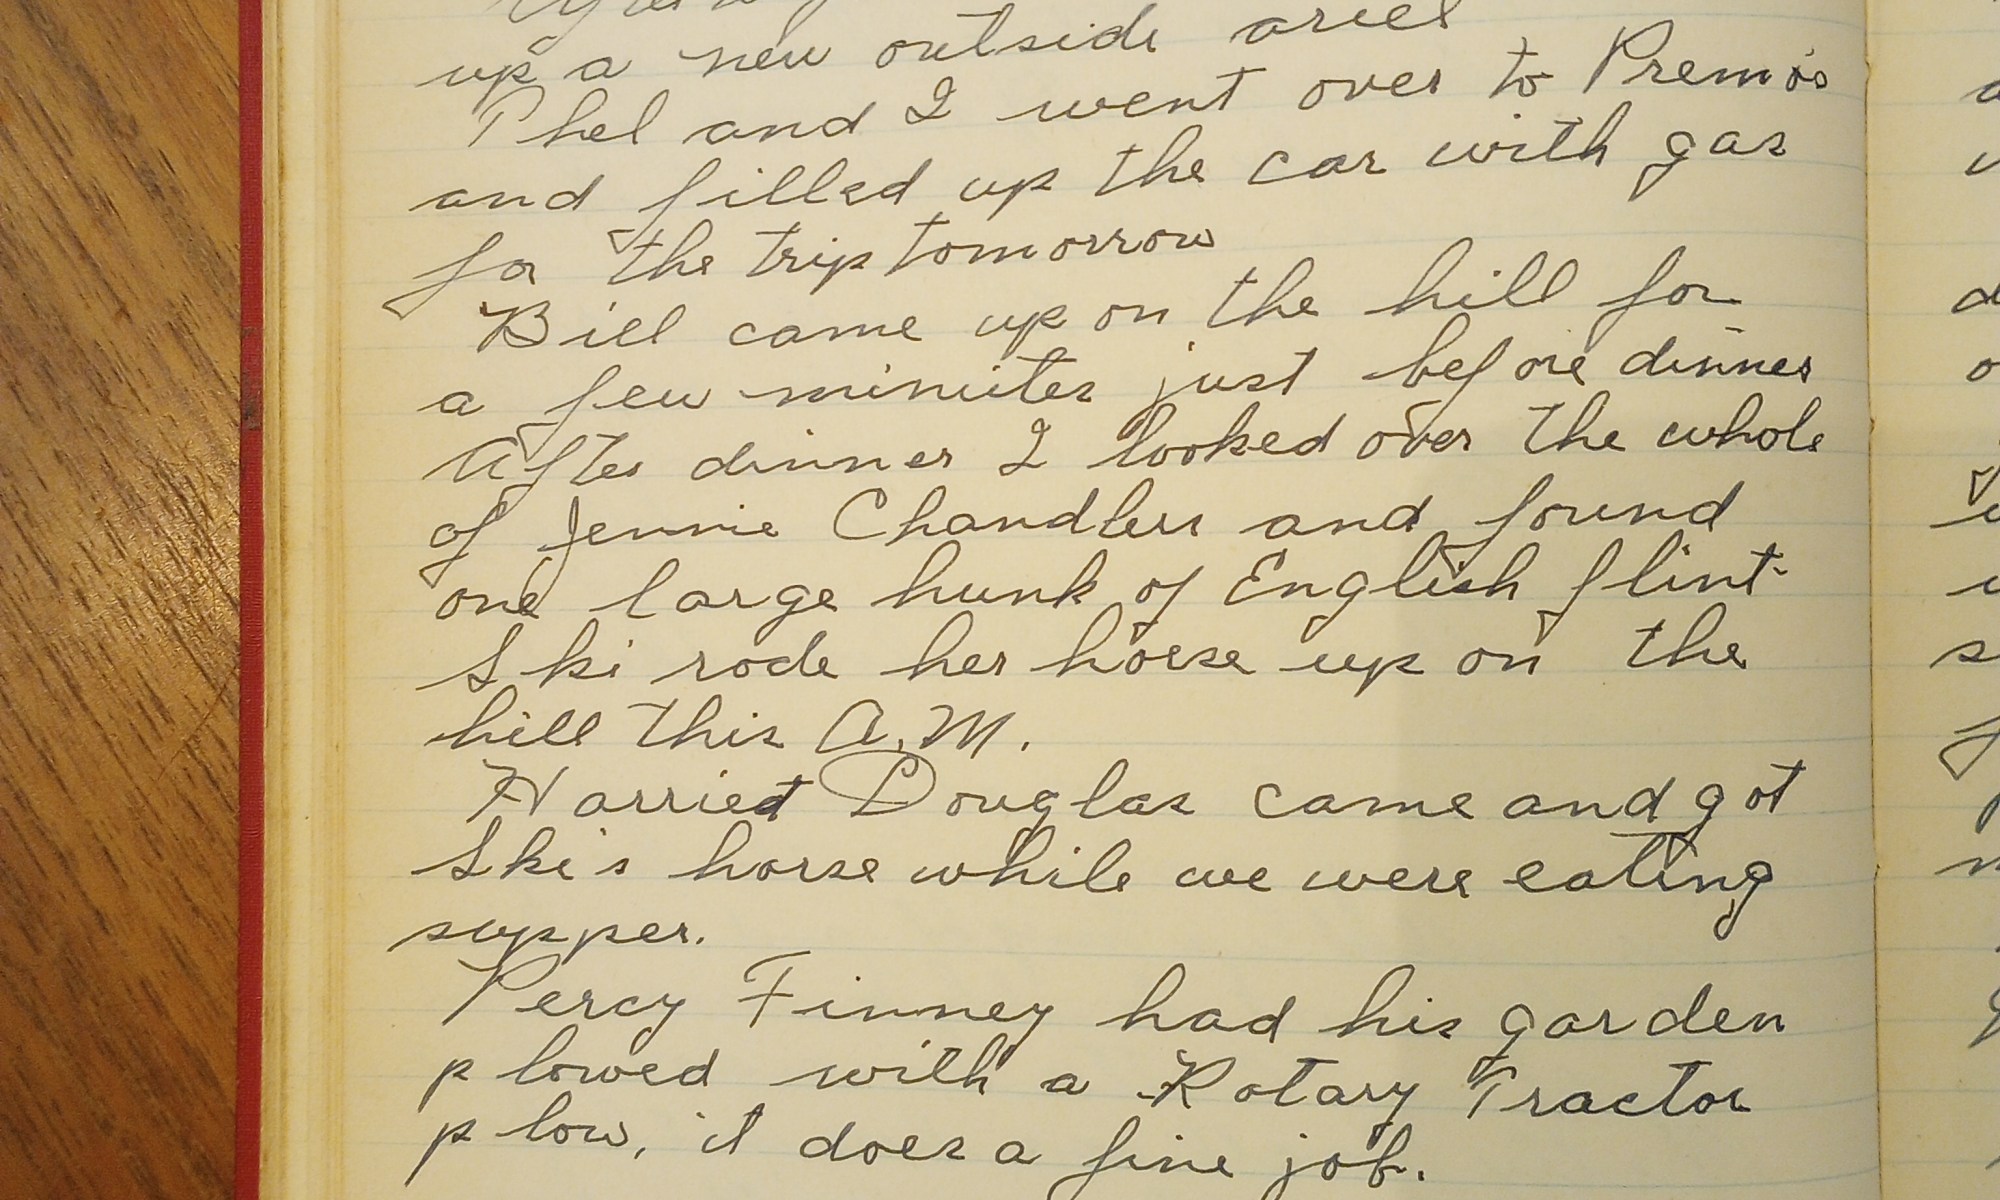 up a new outside ariel
Phel and I went over to Premo's
and filled up the car with gas
for the trip tomorrow
Bill came up on the hill for
a few minutes just before dinner
After dinner I looked over the whole
of Jennie Chandlers and found
one large hunk of English flint-
Ski rode her horse up on the
hill this A.M.
Harriet Douglas came and got
Ski's horse while we were eating
supper.
Percy Finney had his garden
plowed with a Rotary Tractor
plow, it does a fine job.